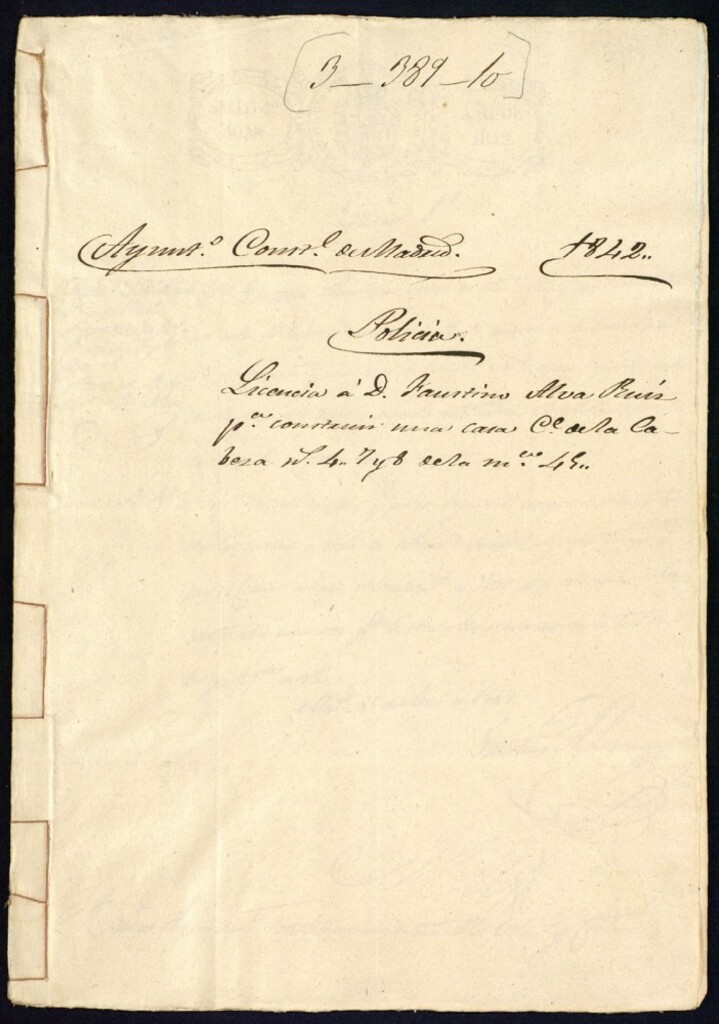 [3-389-10]
Ayunt.º Const.l de Madrid. 1842..
Policia.
Licencia á D. Faustino Alva Ruiz
p.ª construir una casa C.e de la Ca-
beza n.s 4.. 7 y 8 de la m.na 45..